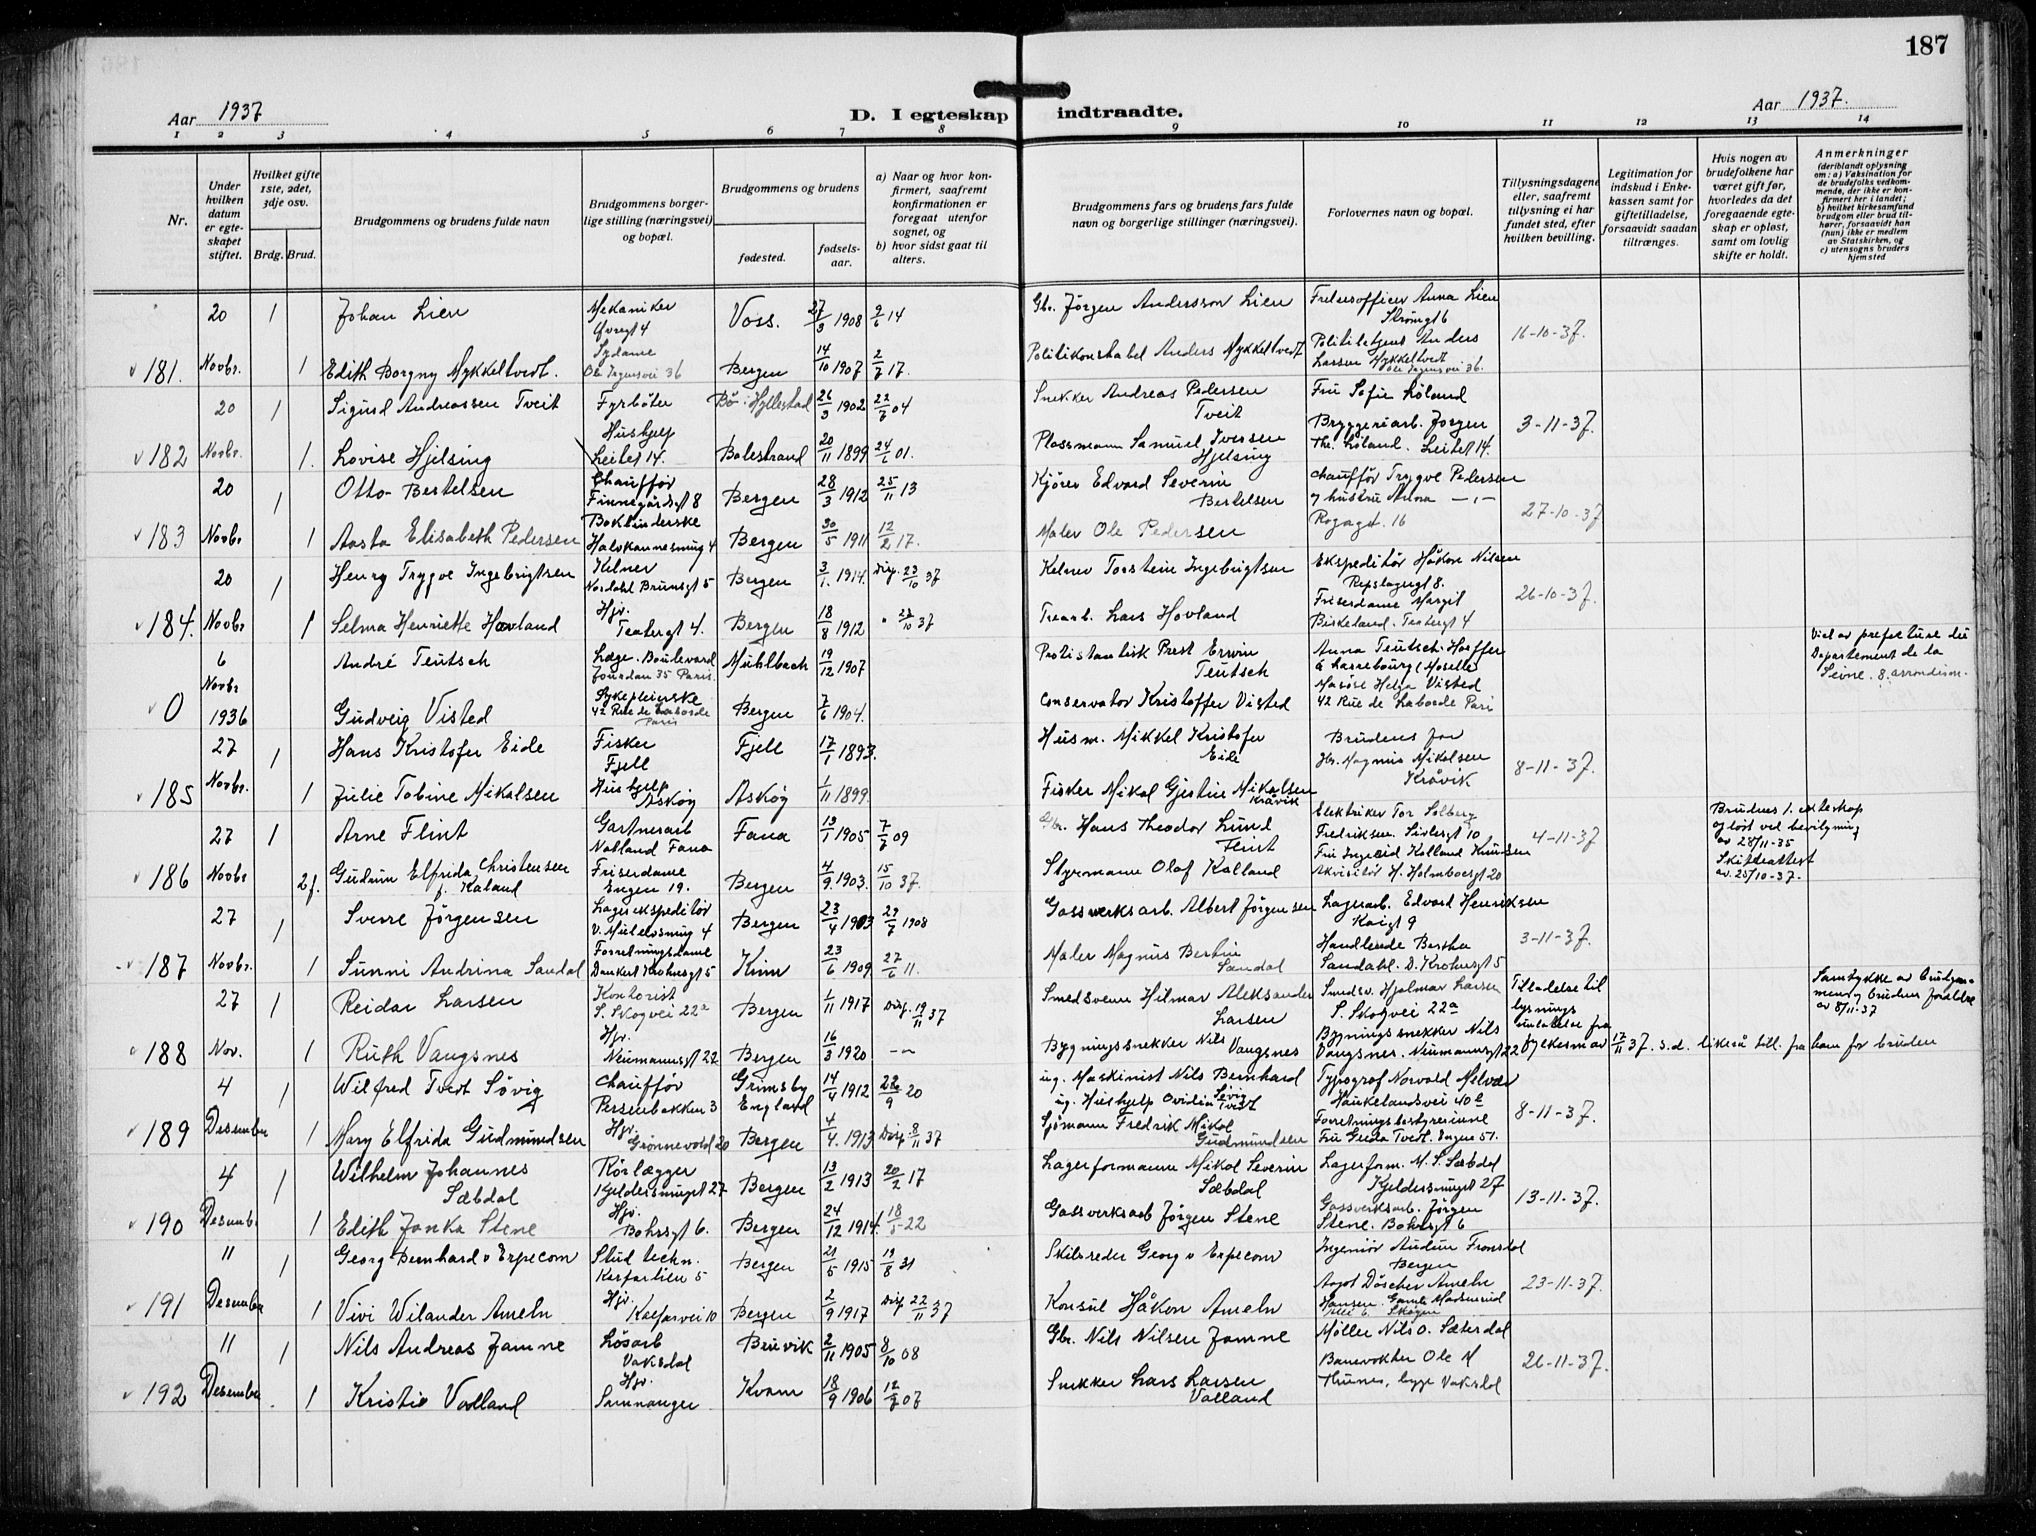 187
Aar 1937
D. I egteskap indtraadte.
Aar 1937.
1 2 3 4 5 6 7 8 9 10 11 12 13 14
Nr.
Under hvilken datum er egteskapet stiftet.
Hvilket gifte 1ste, 2det, 3dje osv.
Brdg. Brud.
Brudgommens og brudens fulde navn
Brudgommens borgerlige stilling (næringsvei) og bopæl.
Brudgommens og brudens
fødested.
fødselsaar.
a) Naar og hvor konfirmert, saafremt konfirmationen er foregaat utenfor sognet, og
b) hvor sidst gaat til alters.
Brudgommens fars og brudens fars fulde navn og borgerlige stillinger (næringsvei).
Forlovernes navn og bopæl.
Tillysningsdagene eller, saafremt tillysning ei har fundet sted, efter hvilken bevilling.
Legitimation for indskud i Enkekassen samt for giftetilladelse, forsaavidt saadan tiltrænges.
Hvis nogen av brudefolkene har været gift før, hvorledes da det foregaaende egteskap er opløst, samt om lovlig skifte er holdt.
Anmerkninger
(deriblandt oplysning om: a) Vaksination for de brudefolks vedkommende, der ikke er konfirmert her i landet;
b) hvilket kirkesamfund brudgom eller brud tilhører, forsaavidt han (hun) ikke er medlem av Statskirken, og
c) utensogns bruders hjemsted
20 1 Johan Lien Mekaniker Voss. 27/3 1908 14 Gbr. Jørgen Andersson Lien Frelsesofficer Anna Lien
16-10-37.
181. Novbr. 1 Edith Borgny Mykkeltvedt. Sydame Ole Irgensvei 36 Bergen 14/10 1907 2/7 17. Politikonstabel Anders Mykkeltvedt Politibetjent Anders Larsen Mykkeltvedt Ole Irgensvei 36.
20 1 Sigurd Andreassen Tveit Fyrbøter Bø i Hyllestad 26/3 1902 04 Snekker Andreas Pedersen Tveit Fru Sofie Løland
3-11-37.
182 Novbr. 1. Lovise Hjelsing Hushjelp Leitet 14. Balestrand 20/11 1899 01. Plassmann Samuel Iversen Hjelsing Bryggeriarb. Jørgen Th. Løland. Leitet 14.
20 1 Otto Bertelsen Chauffør Finnegårdsgt 8 Bergen 28/3 1912 25/11 13 Kjører Edvard Severin Bertelsen Chauffør Trygve Pedersen og hustru Anna
27-10-37
183 Novbr 1 Aasta Elisabeth Pedersen Bokbinderske Bergen 30/5 1911 12/2 17. Maler Ole Pedersen
20 1 Henry Trygve Ingebrigtsen Kelner Nordahl Brunsgt 5 Bergen 3/1. 1914. Disp. 23/10 37 Kelner Torstein Ingebrigtsen Ekspeditør Håkon Nilsen Repslagergt 8.
26-10-37.
184. Novbr 1 Selma Henriette Hovland Hjv. Teatergt 4. Bergen 18/8 1912 " 23/10 37 Trearb. Lars Hovland Friserdame Margit Birkeland. Teatergt 4
6 Novbr André Teutsch Læge. Boulevard Jourdan 35 Paris. Mühlbach 19/12 1907 Protestantisk Prest Erwin Teutsch Anna Teutsch Hoeffer à Sarrebourg (Moselle)
Viel av prefecture du Departement de la Seine. 8. arrondism.
0 1936 Gudveig Visted Sykepleierske 42 Rue de Laborde Paris Bergen 7/6 1904. Conservator Kristoffer Visted Helga Visted 42 Rue de Laborde Paris
27 1 Hans Kristofer Eide Fisker Fjell Fjell 17/1 1893. Husm. Mikkel Kristofer Eide Brudens far
8-11-37.
185 Novbr. 1 Julie Tobine Mikalsen Hushjelp Askøy Askøy 1/11 1899. Fisker Mikal Gjertin Mikalsen Kråvik Gbr. Magnus Mikalsen Kråvik
27 1 Arne Flint Gartnerarb Natland Fana Fana 13/1 1905 7/7 09 Gbr. Hans Theodor Lund Flint Elektriker Tor Solberg Fredriksen. 10
4-11-37
Brudens 1. ekteskap opløst ved bevilgning av 28/11-35 Skifteattest av. 25/10-37.
186 Novbr 2 f. Gudrun Elfrida Christensen f. Kaland Friserdame Engen 19. Bergen 4/9. 1903. 15/10 37. Styrmann Olaf Kalland Fru Ingerid Kalland Knudsen Akvisitør H. Holmboesgt 20
27 1 Sverre Jørgensen Lagerekspeditør Bergen 23/4 1903 1908 Gassverksarb. Albert Jørgensen Lagerarb. Edvard Henriksen Kaigt 9
3-11-37.
187 Novbr. 1 Sunni Andrina Sandal Forretningsdame Dankert Krohnsgt 5 Kinn 23/6 1909 27/6 11. Maler Magnus Bertin Sandal Handlende Bertha Sandahl. D. Krohnsgt 5
27 1 Reidar Larsen Kontorist S. Skogvei 22a Bergen 1/11 1917 Disp. 19/11 37 Smedsvenn Hilmar Aleksander Larsen Smedsv. Hjalmar Larsen S. Skogvei 22a
Tilladelse til lysnings unlatelse fra fylkesm av 17/11 37. s.d. likeså till. fra ham for bruden
Samtykke av brudgommens og brudens foreldre av 8/11-37
188 Nov. 1 Ruth Vangsnes Hjv. Neumannsgt 22 Bergen 16/3 1920 Bygningssnekker Nils Vangsnes Bygningssnekker Nils Vangsnes. Neumannsgt 22
4 1 Wilfred Tvedt Søvig Chauffør Persenbakken 3 Grimsby England 14/4 1912 20 ug. Maskinist Nils Bernhard Søvig ug. Hushjelp Ovidia Tvedt Typograf Norvald Milvær Haukelandsvei
8-11-37.
189 Desember 1 Mary Elfrida Gudmundsen Hjv. Grønnevold 20 Bergen 4/4. 1913 Disp. 8/11 37 Sjømann Fredrik Mikal Gudmundsen Forretningsbestyrerinne Fru Gerda Tvedt. Engen 51.
4 1 Wilhelm Johannes Sæbdal Rørlægger Kjeldersmuget 27 Bergen 13/2 1913 20/2 17 Lagerformann Mikal Severin Sæbdal Lagerform. M. S. Sæbdal Kjeldersmuget 27
13-11-37.
190 Desembr. 1 Edith Janka Stene Hjv. Bohrsgt 6. Bergen 24/12 1914. 18/5 22 Gassverksarb Jørgen Stene Gassverksarb. Jørgen Stene. Bohrsgt 6
11 1 Georg Bernhard v Erpecom Stud techn. Kalfarlien 5 Bergen 21/5 1915 31 Skibsreder Georg v Erpecom Ingeniør Audun Fronsdal Bergen
23-11-37.
191 Desember 1 Vivi Wilander Ameln Hjv. Kalfarvei 10 Bergen 2/9 1917 Disp. 22/11 37 Konsul Håkon Ameln Aagot Døscher Ameln Hansen.
11 1 Nils Andreas Jamne Løsarb Vaksdal Bruvik 2/11 1905 8/10 08 Gbr. Nils Nilsen Jamne Møller Nils O. Sæterdal
26-11-37.
192 Desember 1 Kristi Valland Hjv. Samnanger Kvam 18/9 1906 07 Snekker Lars Larsen Valland Banevokter Ole M Vaksdal